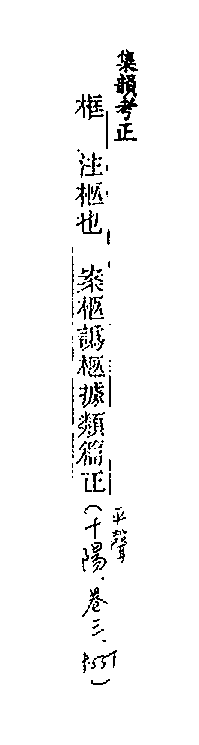 集韻考正
框　注柩也　案柩譌樞據類篇正
平聲
(十陽.卷三.P537)